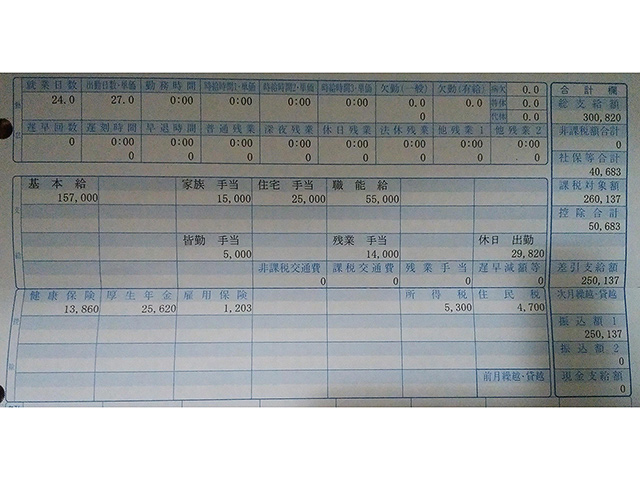 就業日数 出勤日数・単価 勤務時間 時給時間1・単価 時給時間2・単価 時給時間3・単価 欠勤(一般) 欠勤(有給) 病欠 0.0
24.0 27.0 0:00 0:00 0:00 0:00 0.0 0.0 特休 0.0
0 0 0 0 0 代休 0.0
遅早回数 遅刻時間 早退時間 普通残業 深夜残業 休日残業 法休残業 他残業1 他残業2
0 0:00 0:00 0:00 0:00 0:00 0:00 0:00 0:00
0 0 0 0 0 0
基本給 家族 手当 住宅 手当 職能給
157,000 15,000 25,000 55,000
皆勤 手当 残業 手当 休日 出勤
5,000 14,000 29,820
非課税交通費 課税交通費 残業手当 遅早減額等
0 0 0 0
健康保険 厚生年金 雇用保険 所得税 住民税
13,860 25,620 1,203 5,300 4,700
前月繰越・貸越
合計欄
総支給額
300,820
非課税額合計
0
社保等合計
40,683
課税対象額
260,137
控除合計
50,683
差引支給額
250,137
次月繰越・貸越
振込額1
250,137
振込額2
0
現金支給額
0